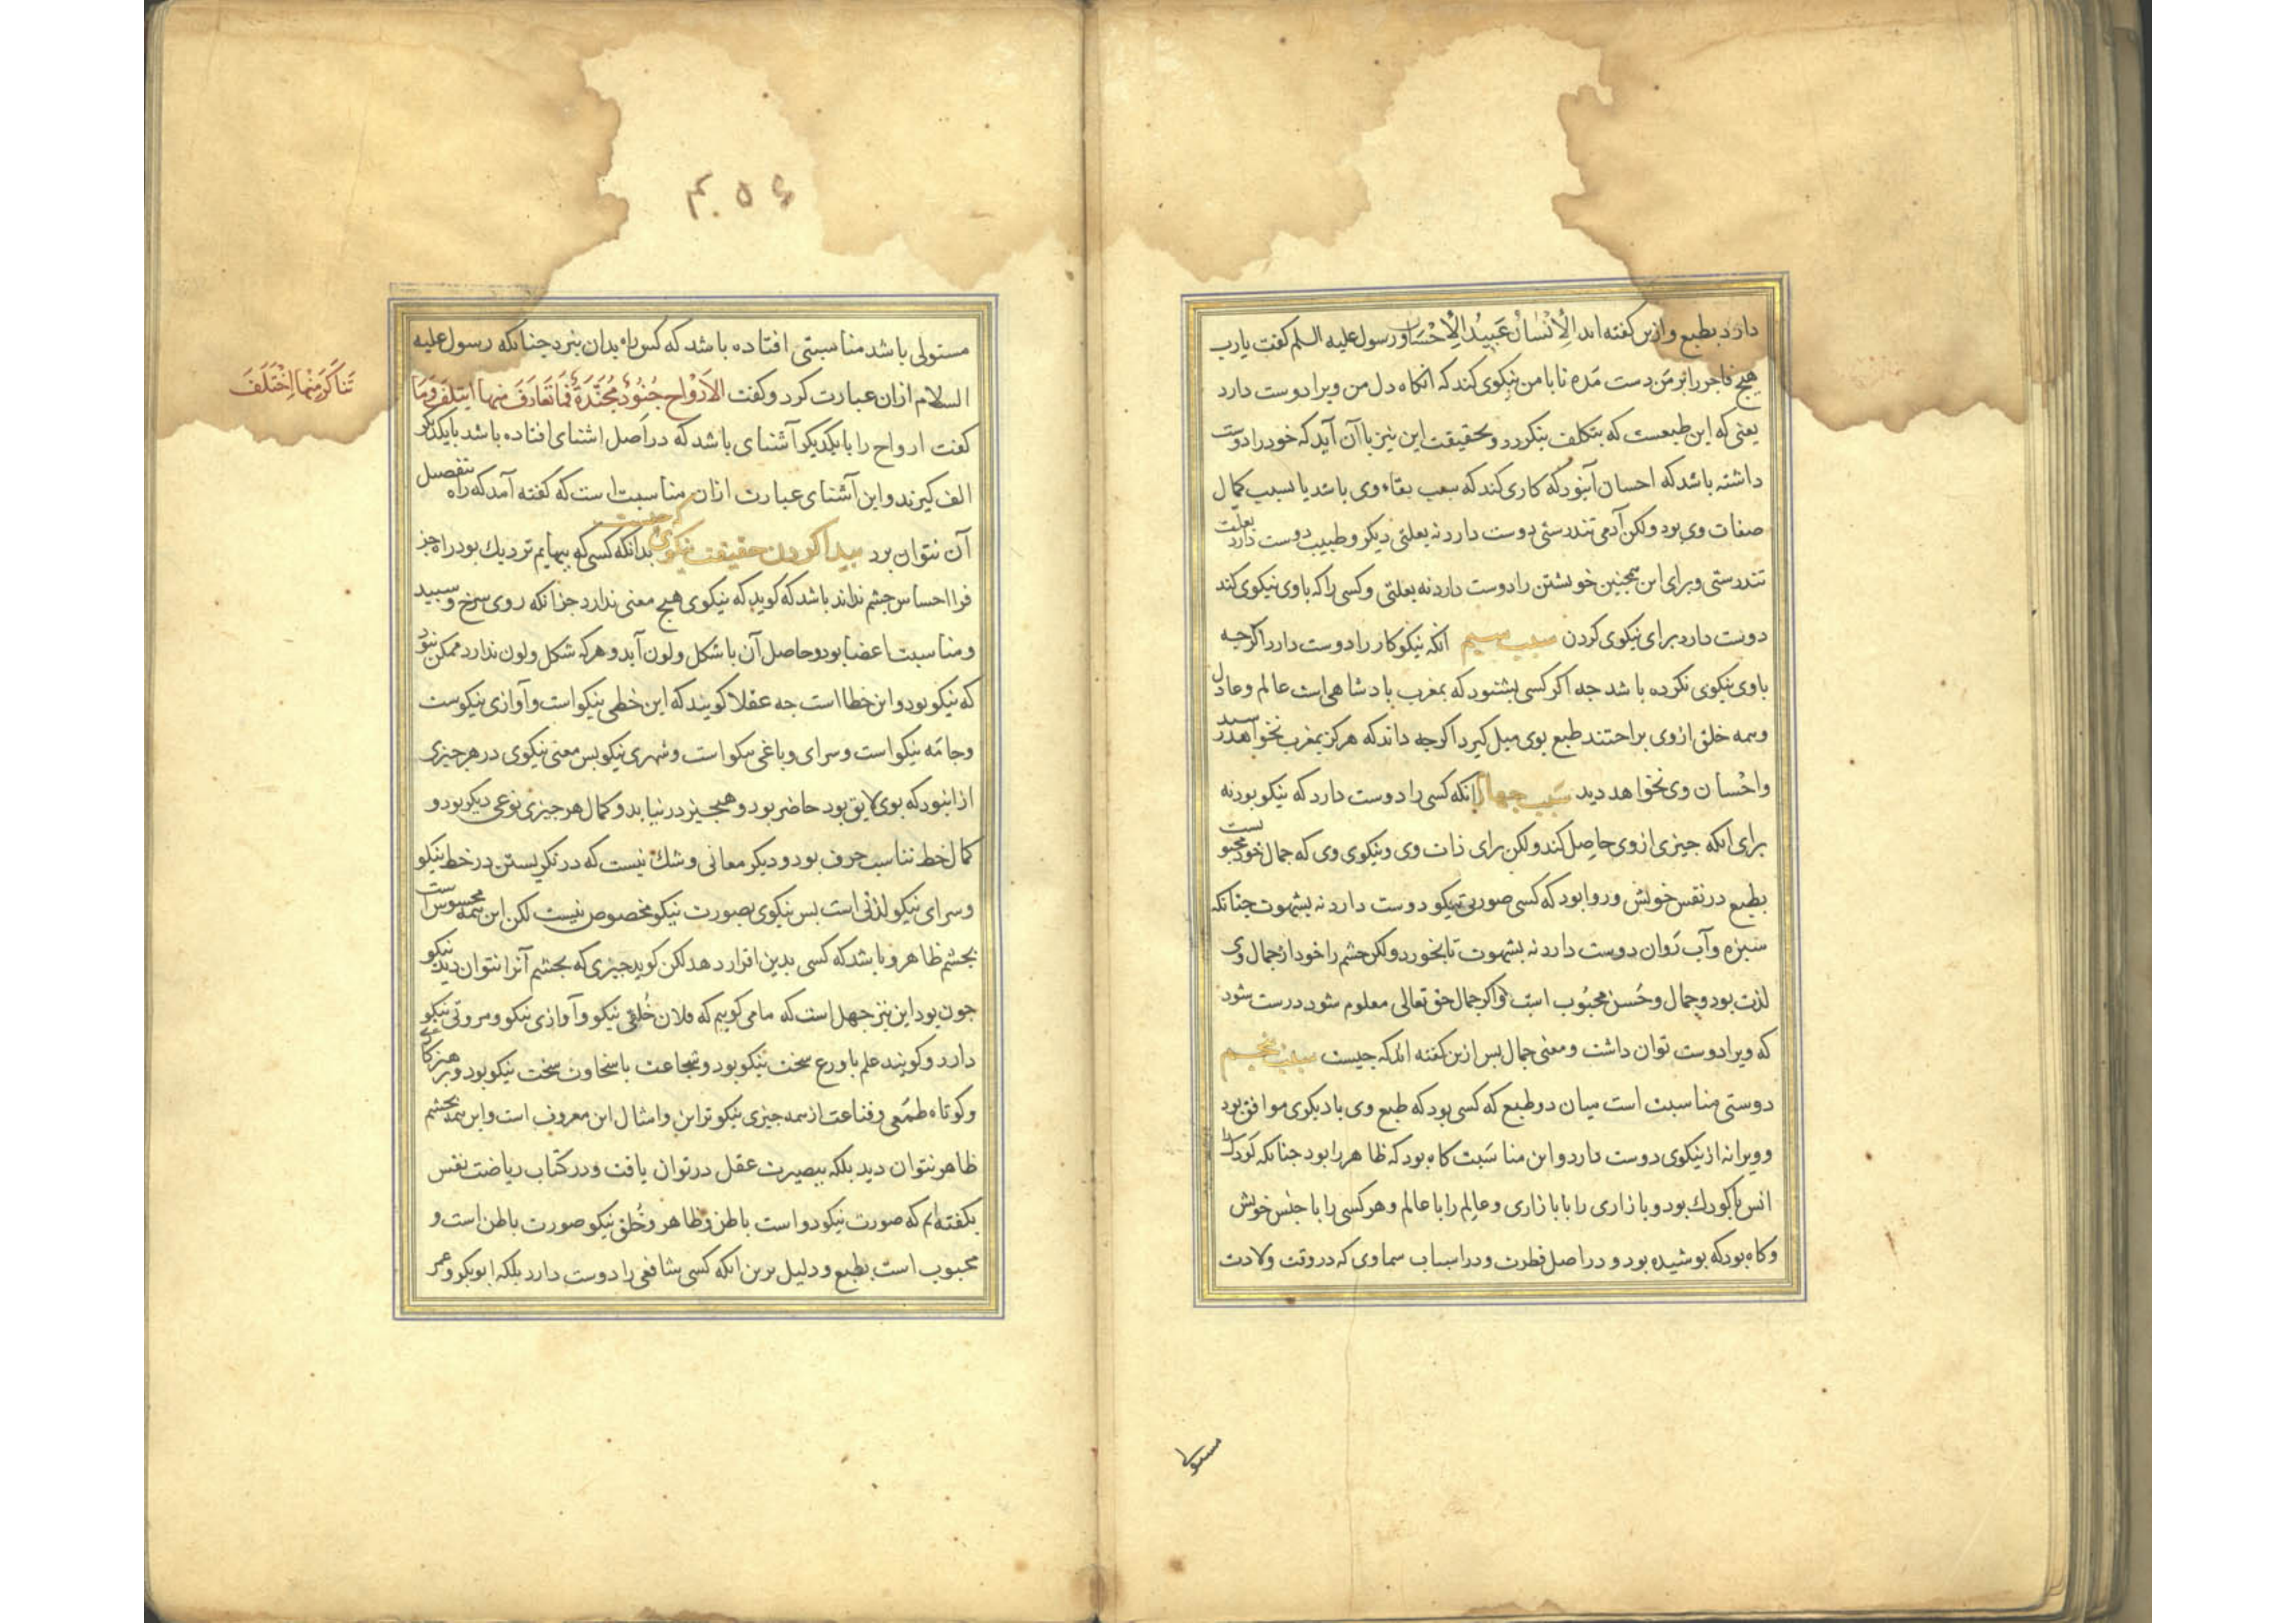 دارد بطبع و ازین گفته اند الْاِنْسَانُ عَبِیدُ الْاِحْسَان و رسول علیه السلم کفت یارب
هیچ فاجر را بر من دست مده تا با من نیکوی کند که انکاه دل من ویرا دوست دارد
یعنی که این طبعست که بتکلف بنکردد و بحقیقت این نیز با آن آید که خود را دوست
داشته باشد که احسان آنبود که کاری کند که سبب بقاء وی باشد یا سبب کمال
صفات وی بود ولکن آدمی تندرستی دوست دارد نه بعلتی دیکر و طبیب دوست دارد بعلت
تندرستی و برای این همجنین خویشتن را دوست دارد نه بعلتی و کسی را که با وی نیکوی کند
دوست دارد برای نیکوی کردن سبب سیم انکه نیکوکار را دوست دارد اکرجه
با وی نیکوی نکرده باشد جه اکر کسی بشنود که بمغرب بادشاهی است عالم و عادل
و همه خلق از وی براحتند طبع بوی میل کیرد اکرجه داند که هرکز بمغرب نخواهد رسید
و احْسان وی نخواهد دید سبب جهارم انکه کسی را دوست دارد که نیکو بود نه
برای انکه جیزی از وی حاصل کند ولکن برای ذات وی و نیکوی وی که جمال خود محبوبست
بطبع در نفس خویش و روا بود که کسی صورتی نیکو دوست دارد نه بشهوت جنانکه
سبزه و آب رَوان دوست دارد نه بشهوت تا بخورد ولکن جشم را خود از جمال وی
لذت بود و جمال و حُسن محبُوب است و اکر جمال حق تعالی معلوم شود درست شود
که ویرا دوست توان داشت و معنی جمال بس ازین کفته اید که جیست سبب بنجم
دوستی مناسبت است میان دو طبع که کسی بود که طبع وی با دیکری موافق بود
و ویرا نه از نیکوی دوست دارد و این مناسَبت کاه بود که ظاهر بود جنانکه کودک را
انس با کودک بود و بازاری را با بازاری و عالِم را با عالم و هر کسی را با جنس خویش
و کاه بود که بوشیده بود و در اصل فطرت و در اسباب سماوی که در وقت ولادت
مستولی
۴۵۶
مستولی باشد مناسبتی افتاده باشد که کس راه بدان نبرد جنانکه رسول علیه
السلام ازان عبارت کرد و کفت الاَرْوَاح جُنُودٌ مُجَنَّدَةٌ فَمَا تَعَارَفَ مِنها ایتَلَفَ وَمَا
تَنَاکَرَ مِنْهَا اِخْتَلَفَ
کفت ارواح را با یکدیکر آشنای باشد که در اَصل اشنای افتاده باشد با یکدیکر
الف کیرند و این آشنای عبارت ازان مناسبت است که کفته آمد که راه بتفصیل
آن نتوان برد بیدا کردن حقیقت نیکوی که جیست بدانکه کسی که ببهایم نزدیک بود راه جز
فرا احساس جشم نداند باشد که کوید که نیکوی هیج معنی ندارد جز انکه روی سرخ و سبید
و مناسبت اعضا بود و حاصل آن با شکل و لون آید و هرکه شکل و لون ندارد ممکن نبود
که نیکو بود و این خطا است جه عقلا کویند که این خطی نیکو است و آوازی نیکوست
و جامَه نیکو است و سرای و باغی نیکو است و شهری نیکو بس معنی نیکوی در هر جیزی
از انبود که بوی لایق بود حاضر بود و هیج جیز در نیابد و کمال هر جیزی نوعی دیکر بود و
کمال خط تناسب حرف بود و دیکر معانی و شک نیست که در نکریستن در خط نیکو
و سرای نیکو لذتی است بس نیکوی بصورت نیکو مخصوص نیست لکن این همه محسوس است
بجشم ظاهر و باشد که کسی بدین اقرار دهد لکن کوید جیزی که بجشم آنرا نتوان دید نیکو
جون بود این نیز جهل است که ما می کوییم که فلان خُلقی نیکو و آوازی نیکو و مروتی نیکو
دارد و کویند علم با ورع سخت نیکو بود و شجاعت با سخاوت سخت نیکو بود و برهیزکاری
و کوتاه طمَعی و قناعت از همه جیزی نیکوتر این و امثال این معروف است و این همه بجشم
ظاهر نتوان دید بلکه ببصیرت عقل در توان یافت و در کتاب ریاضت نفس
بکفته ایم که صورت نیکو دو است باطن و ظاهر و خُلق نیکو صورت باطن است و
محبوب است بطبع و دلیل برین انکه کسی شافعی را دوست دارد بلکه ابوبکر و عمر